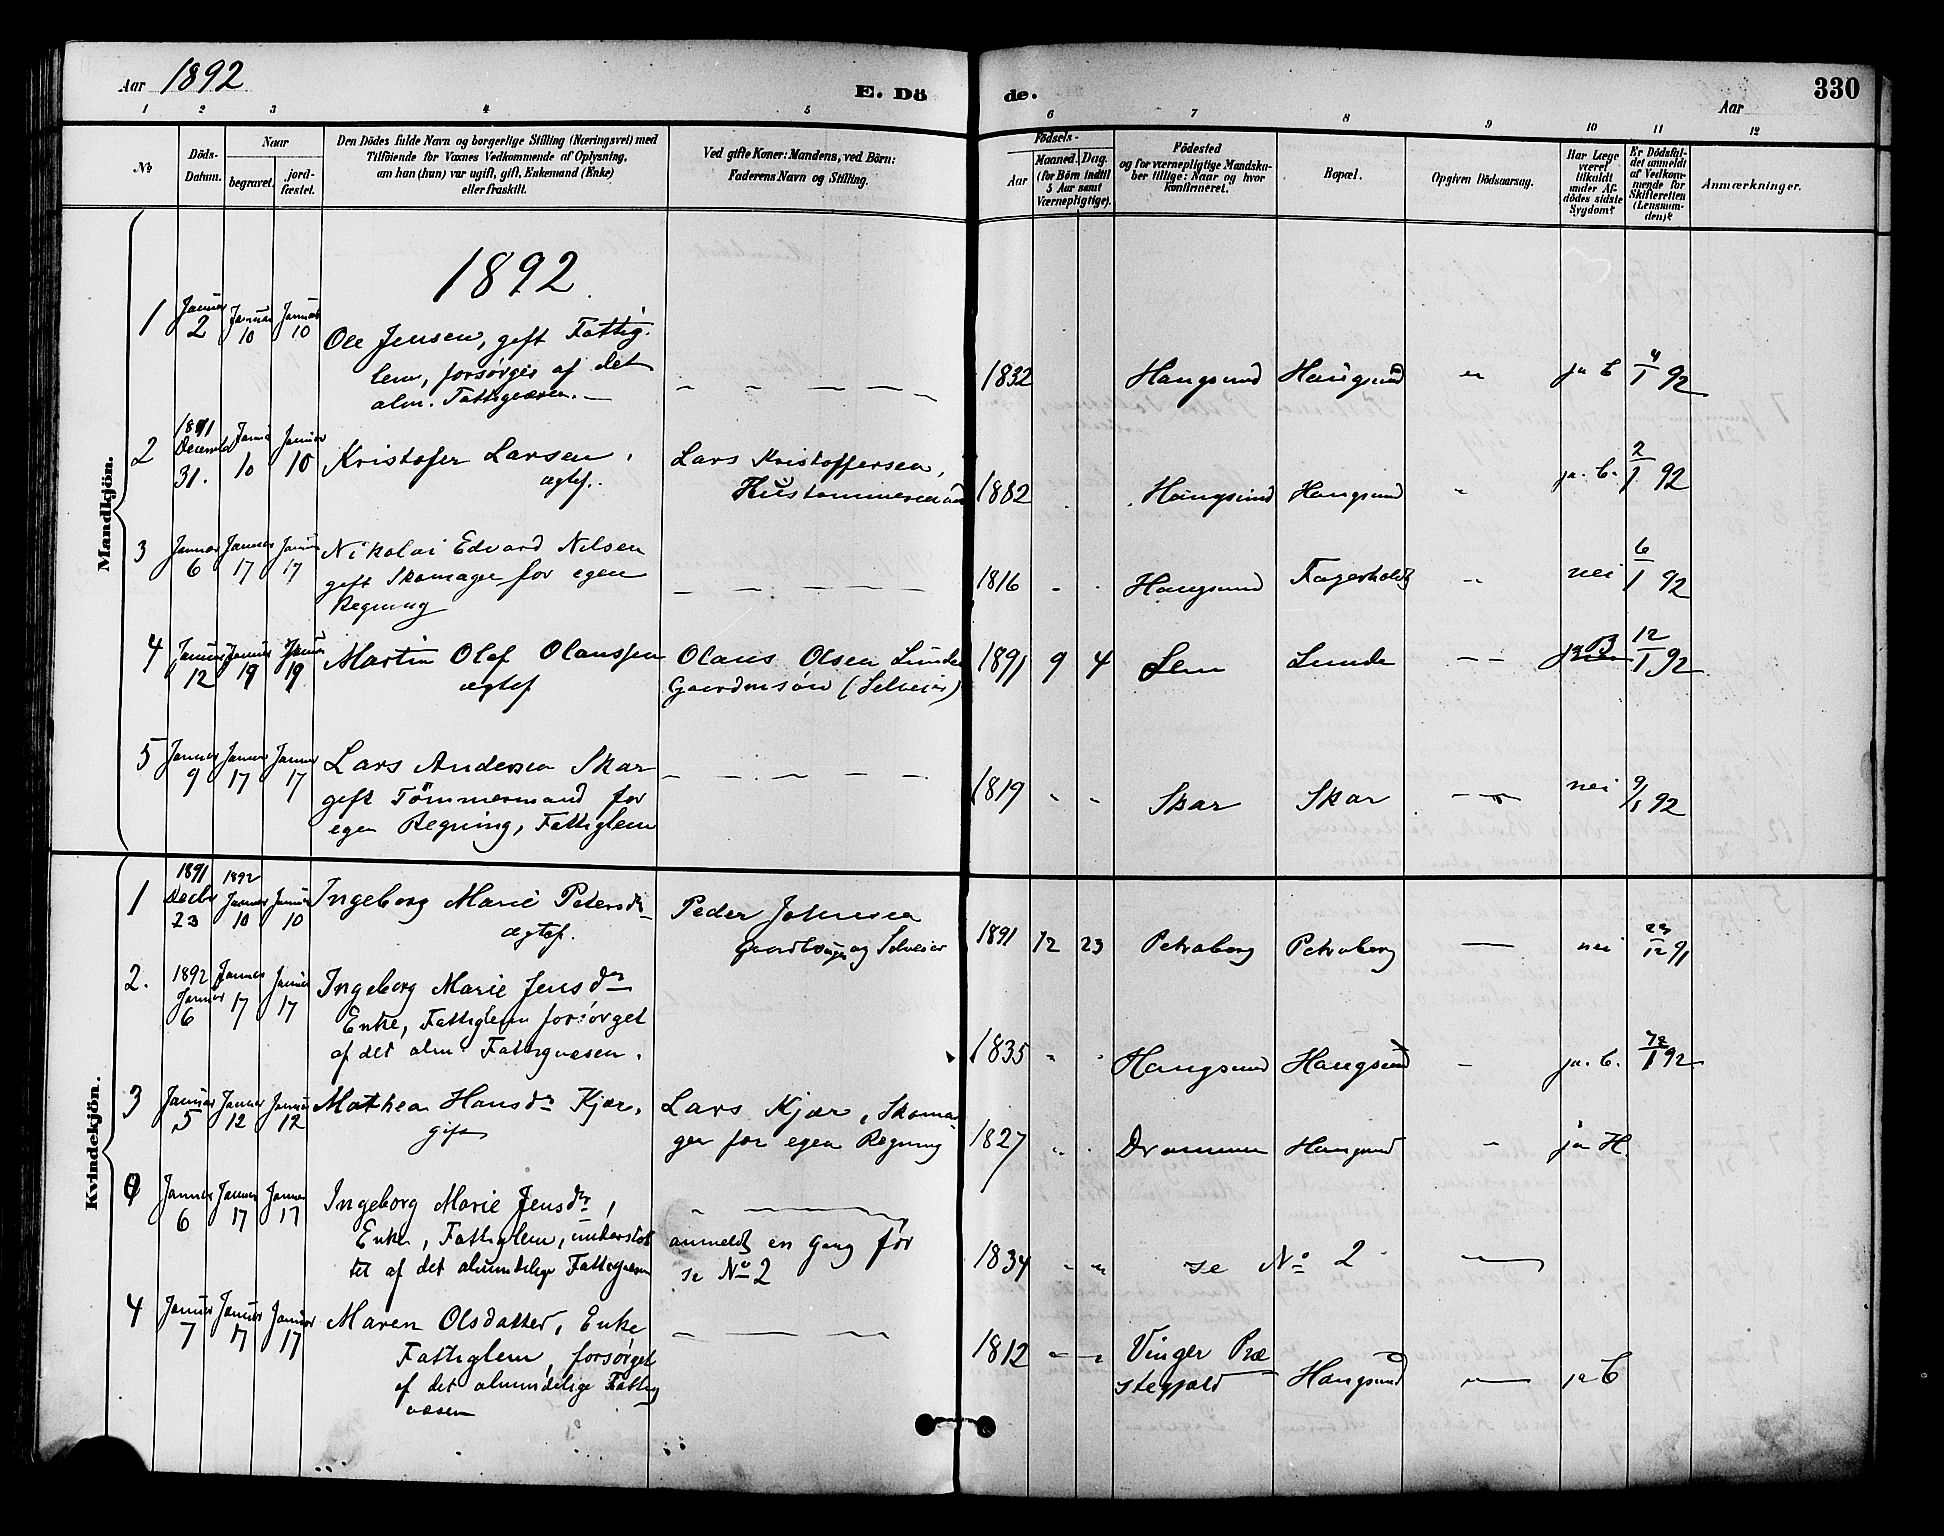 Aar 1892
E. Dö
de.
Aar
330
1 2 3 4 5 6 7 8 9 10 11 12
№
Döds-
Datum.
Naar
begravet.
jord-
fæstet.
Den Dödes fulde Navn og borgerlige Stilling (Næringsvei) med
Tilföiende for Voxnes Vedkommende af Oplysning,
om han (hun) var ugift, gift, Enkemand (Enke)
eller fraskilt.
Ved gifte Koner: Mandens, ved Börn:
Faderens Navn og Stilling.
Födsels-
Aar
Maaned.
Dag.
(for Börn indtil
5 Aar samt
Værnepligtige).
Födested
og for værnepligtige Mandska-
ber tillige: Naar og hvor
Konfirmeret.
Bopæl.
Opgiven Dödsaarsag.
Har Læge
været
tilkaldt
under Af-
dödes sidste
Sygdom?
Er Dödsfal-
det anmeldt
af Vedkom-
mende for
Skifteretten
(Lensman-
den)?
Anmærkninger.
Mandkjön.
1892
1 Januar 2 Januar 10 Januar 10
Ole Jensen, gift Fattig-
lem, forsørges af det
alm. Fattigvæsen. —
1832 Haugsund Haugsund — ja C 4/1 92
2 1891 December 31. Januar 10 Januar 10
Kristofer Larsen,
ægtef.
Lars Kristoffersen,
Hustømmermand
1882 Haugsund Haugsund ja. C. 2/1 92
3 Januar 6 Januar 17 Januar 17
Nikolai Edvard Nilsen
gift Skomager for egen
Regning
1816 Haugsund Fagerholdt nei 6/1 92
4 Januar 12 Januar 19 Januar 19
Martin Olaf Olaussen
ægtef
Olaus Olsen Lunde
Gaardmsøn (Selveier)
1891 9 4 Lunde 12/1 92
5 Januar 9 Januar 17 Januar 17
Lars Andersen Skar
gift Tømmermand for
egen Regning, Fattiglem
1819 Skar Skar nei 9/1 92
Kvindekjön.
1 1891 Decbr 23 1892 Januar 10 Januar 10
Ingeborg Marie Petersdr
ægtef.
Peder Johnsen
Gaardbruger og Selveier
1891 12 23 Petraberg Petraberg — nei 23/12 91
2. 1892 Januar 6 Januar 17 Januar 17
Ingeborg Marie Jensdr
Enke, Fattiglem forsørget
af det alm. Fattigvæsen.
1835 Haugsund Haugsund — ja. C. /1 92
3 Januar 5 Januar 12 Januar 12
Mathea Hansdr Kjær,
gift
Lars Kjær, Skoma-
ger for egen Regning
1827 Drammen Haugsund ja H.
Januar 6 Januar 17 Januar 17
Ingeborg Marie Jensdr,
Enke, Fattiglem, understøt
tet af det almindelige Fattigvæsen
anmeldt en Gang før
se No 2
1834 se No 2
4 Januar 7 Januar 17 Januar 17
Maren Olsdatter, Enke
Fattiglem, forsørget
af det almindelige Fattig
væsen
1812 Vinger Præ
stegjæld Haugsund — ja C